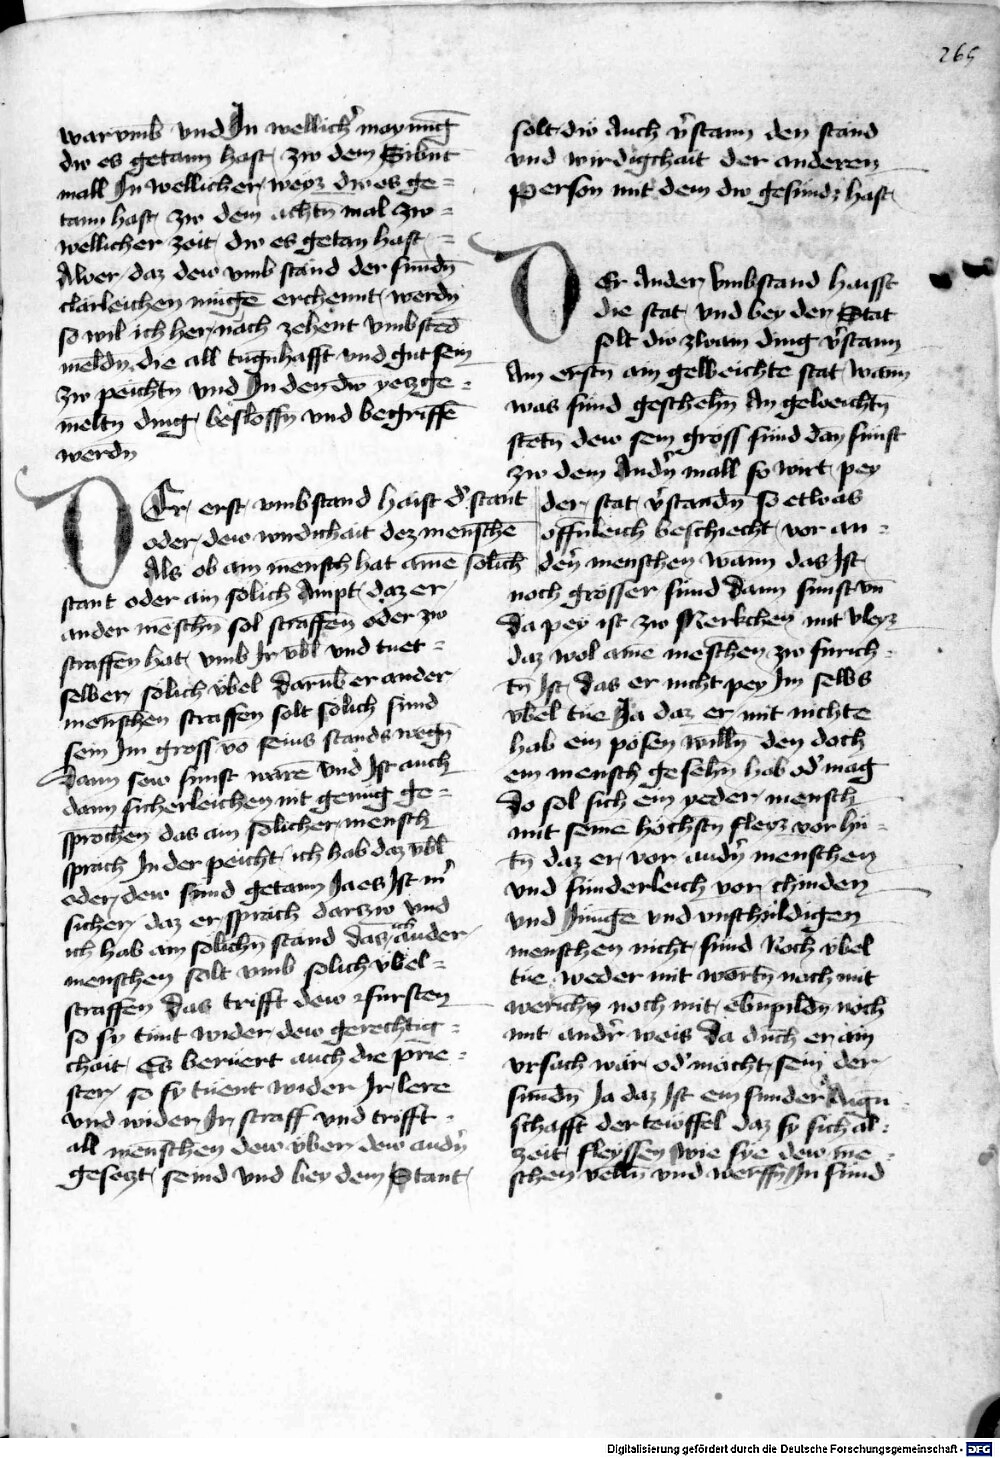 265
war vmb vnd In wellicher maynūg
dw es getann hast zw dem Sibnt
mall In wellicher weyz dw es ge=
tann hast zw dem achtn̄ mal zw=
wellicher zeit dw es getan hast =
Aber daz dew vmb stand der sundn̄
clarleichen mugē erchennt werdn̄
so wil ich her nach zehent vmbsted
meldn̄ die all tugnhafft vnd gut sein
zw peichtn̄ vnd In den dw yeczge=
meltn̄ ding beslossn̄ vnd begriffē
werdn̄
DEr erst vmbstand haist d' stant
oder dew wirdichait dez menschē
Als ob ain mensch hat ainē solich
stant oder ain solich Ampt daz er
ander menschn̄ sol straffen oder zw
straffen hat vmb Ir vbl vnd tuet=
selber solich vbel darūb er ander
menschen straffen solt solich sund
sein Im gross vō seins stands wegn̄
dann sew sunst warē vnd Ist auch
dann sicherleichen nit genug ge=
sprochen das ain solicher mensch
sprach In der peicht ich hab daz vbl
oder dew sund getann Ja es Ist m'
sicher daz er sprach darzw vnd
ich hab ain solichn̄ stand das ich ander
menschen solt vmb solich vbel=
straffen das trifft dew fursten
so sy tunt wider dew gerechtig=
chait Es beruert auch die prie=
ster so sy tuent wider Ir lere
vnd wider Ir straff vnd trifft
all menschen dew vber dew andn̄
gesetzt seind vnd bey dem Stant
solt dw Auch v'stann den stand
vnd wirdigchait der anderen
person mit dem dw gesundt hast
DEr Ander vmbstand haisst
die stat vnd bey der Stat
solt dw zwain ding v'stann
Am erstn ain geweichte stat wann
was sund geschehn̄ An geweichtn̄
stetn̄ dew sein gross sund dan sunst
zw dem Andn̄ mall so wirt pey
der stat v'standn̄ so etwas
offnleich beschiecht vor an=
dern̄ menschen wann das Ist
noch grosser sund dann sunst vn̄
da pey ist zw Merkchen mit vleyz
daz wol ainē menschen zw furich=
tn̄ Ist das er nicht pey Im selbs
vbel tue Ja daz er mit nichte
hab ein posen willn̄ den doch
ein mensch gesehn̄ hab od' mag
do sol sich ein yeder mensch
mit seinē hochstn̄ fleyz vor hu=
tn̄ daz er vor andn̄ menschen
vnd sunderleich vor chinden
vnd Jungē vnd vnschuldigen
menschen nicht sund Noch vbel
tue weder mit wortn̄ noch mit
werichn̄ noch mit ebnpildn̄ noch
mit andr' weis da durch er ain
vrsach war od' mocht sein der
sundn̄ Ja daz Ist ein sunder Aign
schafft der tewffel daz sy sich al=
zeit fleyssen wie sye dew me=
schen velln̄ vnd werffn̄ In sund
Digitalisierung gefördert durch die Deutsche Forschungsgemeinschaft - DFG